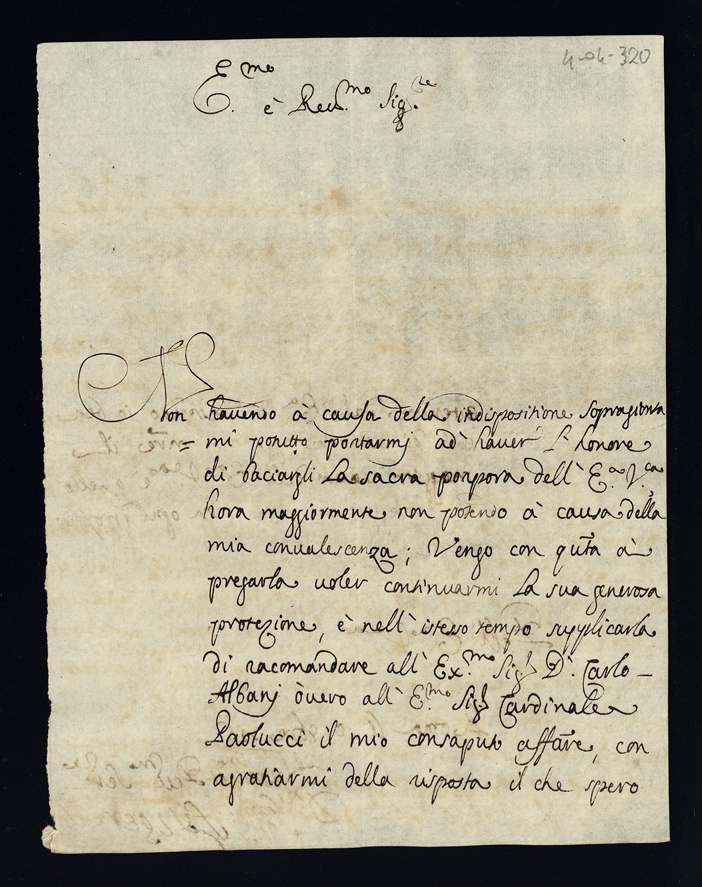 4-04-320
E.mo
è Reu.mo Sig.re
Non havendo à causa della indispositione sopragionta
mi potutto portarmj ad haver l'honore
di baciargli La sacra porpora dell' E.a V.ra
hora maggiormente non potendo à causa della
mia conualescenza; Vengo con q.ta à
pregarla uoler continuarmi La sua generosa
protezione, è nell' istesso tempo supplicarla
di racomandare all' Ex.mo Sig.r D. Carlo
Albanj òuero all' E.mo Sig.r Cardinale
Paolucci il mio consaputo affare, con
agratiarmi della risposta il che spero